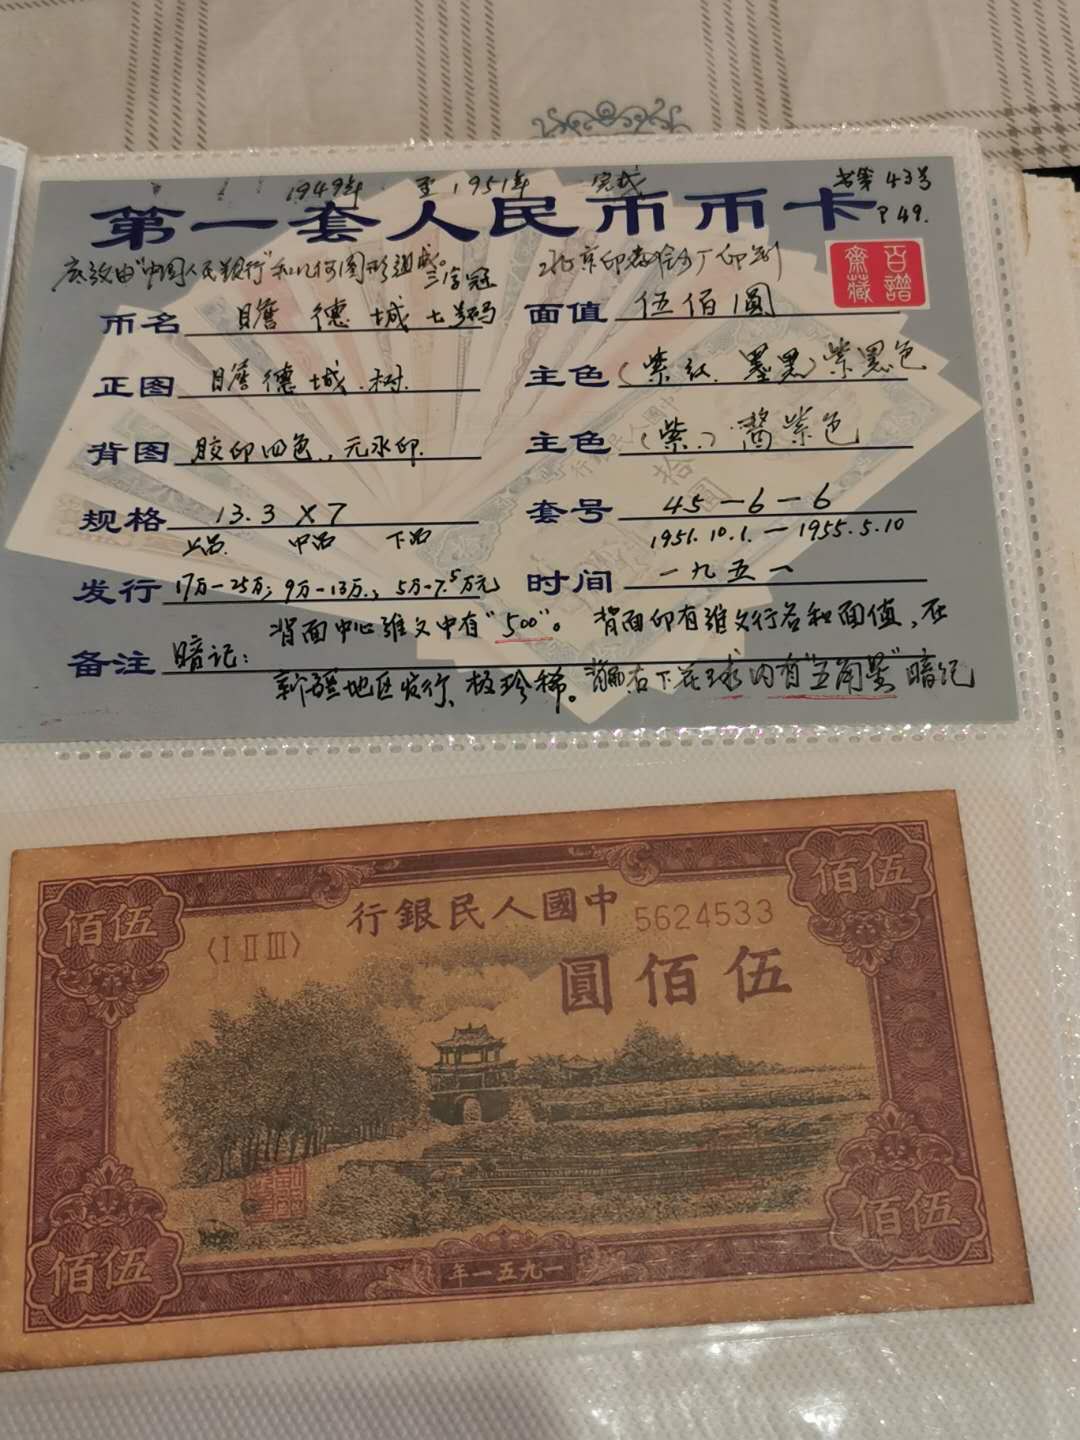 1949年 至1951年 完成 共第43号
第一套人民币币卡 P49.
底纹由"中国人民银行"和几何图形组成。三字冠 北京印春 厂印制
百谱斋藏
币名 瞻德城 七号码 面值 伍佰圆
正图 瞻德城.树. 主色 (紫红.墨黑)紫黑色
背图 胶印四色.,元水印. 主色 (紫.) 酱紫色
规格 13.3×7 套号 45-6-6
上品. 中品 下品 1951.10.1.-1955.5.10
发行 17万-25万;9万-13万.;5万-7.5万元 时间 一九五一
备注 暗记: 背面中心维文中有"500"。 背面印有维文行名和面值,在
新疆地区发行、极珍稀。背面右下花球内有"五角星"暗记
伍佰 伍佰
行銀民人國中 5624533
〈I II III〉
圓佰伍
伍佰 伍佰
年一五九一